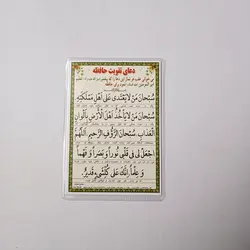 دعای تقویت حافظه
سُبْحَانَ مَنْ لَا یَعْتَدی عَلی اَهْلِ مَمْلَکَتِهِ
سُبْحَانَ مَنْ لَا یَأْخُذُ اَهْلَ الْاَرْضِ بِاَلْوانِ
الْعَذابِ سُبْحَانَ الرَّؤُفِ الرَّحیمِ اَللّهُمَّ
اجْعَلْ لی فی قَلْبی نُوراً وَ بَصَراً وَ فَهْماً
وَ عِلْماً اِنَّکَ عَلی کُلِّ شَیْءٍ قَدیرٌ.